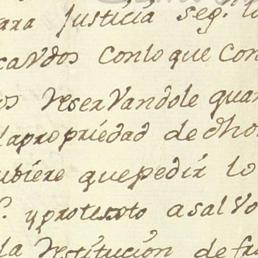 ara Justicia seg. lo
caudos conlo que con
os reserVandole quan
lapropriedad de dho
ubiere que pedir lo
y protexto a salvo
la restitución de fr